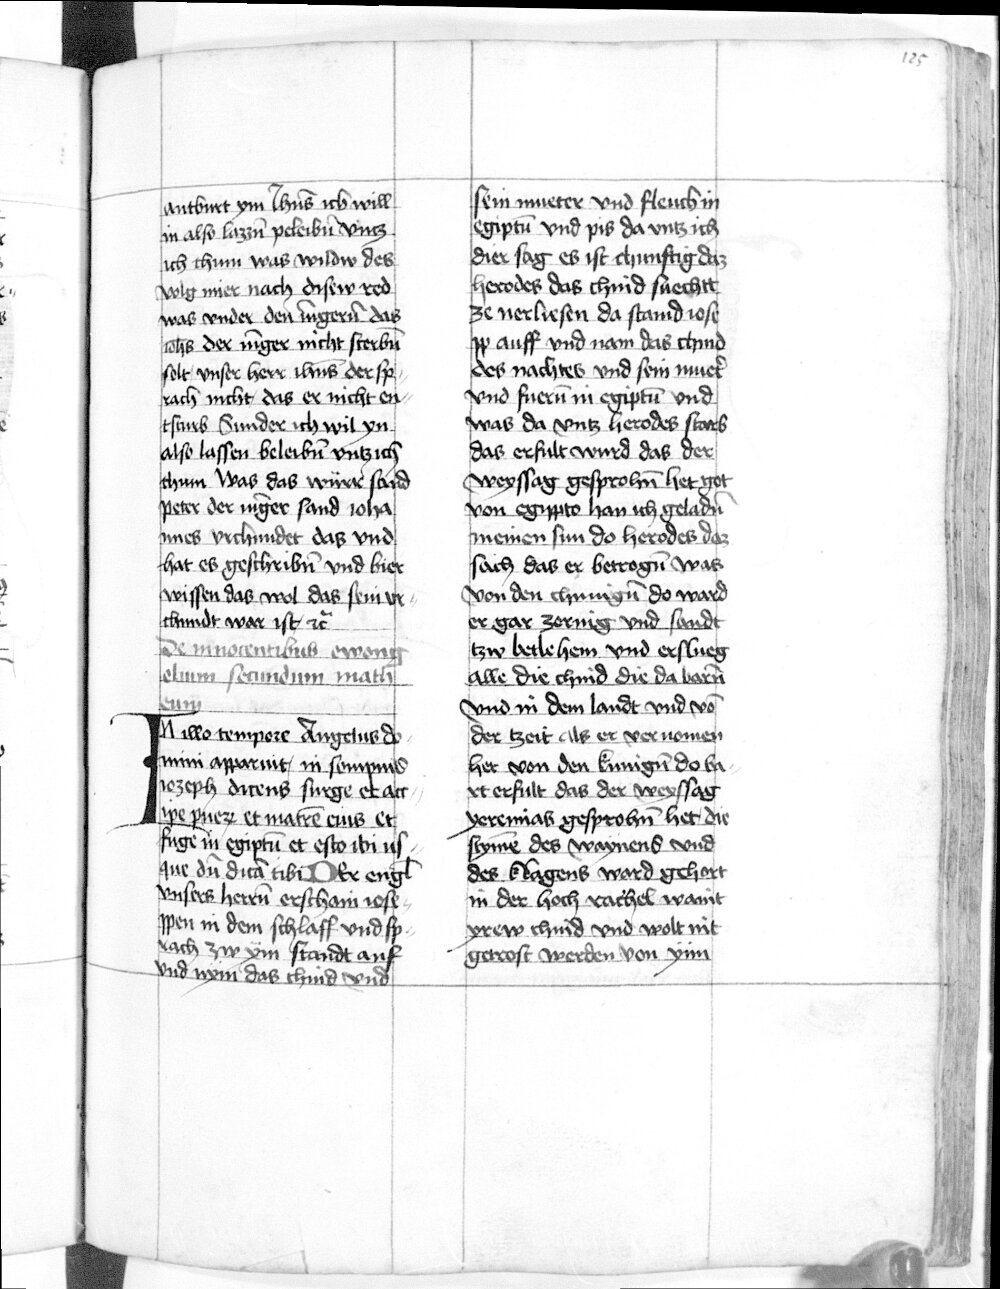 125
antburt ym Ihūs ich will
in also lazzn̄ peleibn̄ vntz
ich chum was wildw des
volg mier nach disew red
was vnder den iūgern̄ das
iohs der iūger nicht sterbn̄
solt vnser herr ihūs der sp
rach nicht das er nicht en
tsturb Sunder ich wil yn
also lassen beleibn̄ vntz ich
chum Was das würar sand
peter der iūger sand ioha
nnes vrchundet das vnd
hat es geschribn̄ vnd bier
wissen das wol das sein vr
chundt war ist ꝛc̄
De innocentibus ewong
elium secundum math
eum
In illo tempore Angelus do
mini apparuit in sompnis
iozeph dicens surge et acc
ipe pueꝝ et matrē eius et
fuge in egiptū et esto ibi us
que dū dicā tibi DEr engl
vnsers herrn̄ erscham iose
ppen in dem schlaff vnd sp
rach zw ÿm standt auf
vnd nym das chind vnd
sein mueter vnd fleuch in
egiptū vnd pis da vntz ich
dier sag es ist chunftig daz
herodes das chind suechtt
ze verliesen da stamd iose
pp auff vnd nam das chind
des nachtes vnd sein muet̄
vnd fuern̄ in egiptū vnd
was da vntz herodes starb
das erfult wurd das der
weyssag gesprohn̄ het got
von egippto han ich geladn̄
meinen sun do herodes daz
sach das er betrogn̄ was
von den chunign̄ do ward
er gar zornig vnd sandt
tzw betlehem vnd erslueg
alle die chind die da barn̄
vnd in dem landt vnd vō
der tzeit als er vernomen
het von den kunign̄ do ba
rt erfult das der weyssag
yeremias gesprohn̄ het die
stÿme des waynens vnd
des klagens ward gehort
in der hoch rachel waint
yrew chind vnd wolt nit
getrost werden von ÿm